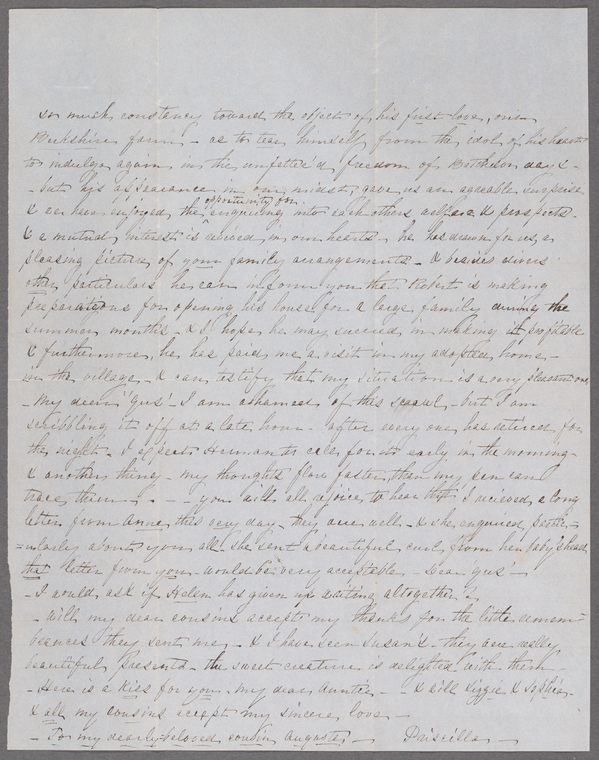 so much constancy toward the object of his first love, our
Berkshire farm - as to tear himself from the idol of his heart
to indulge again in the unfetter'd freedom of Batchelor days -
- but his appearance in our midst, gave us an agreable surprise
opportunity for
& we have enjoyed the inquiring into each others welfare & prospects -
& a mutual interest is revived in our hearts - he has drawn for us, a
pleasing picture of your family arrangements - & besides divers
other particulars he can inform you that Robert is making
preparations for opening his house for a large family during the
summer months - & I hope he may succeed in making it profitable
& furthermore, he has paid me a visit in my adopted home -
in the village - & can testify that my situation is a very pleasant one
- My dear 'Gus' - I am ashamed of this scrawl - but I am
scribbling it off at a late hour - after every one has retired for
the night - I expect Herman to call for it early in the morning -
& another thing - my thoughts flow faster than my pen can
trace them - - - - you will all rejoice to hear that I recieved a long
letter from Anne, this very day - they are well - & she enquired partic-
=ularly about you all - she sent a beautiful curl from her baby's head
that letter from you - would be very acceptable - Dear 'Gus' -
- I would ask if Helen has given up writing altogether?
- Will my dear cousins accept my thanks for the little remem-
brances they sent me - & I have seen Susan's - they are really
beautiful presents - the sweet creature is delighted with them -
- Here is a kiss for you, my dear Auntie - - & will Lizzie & Sophia -
& all my cousins accept my sincere love -
- For my dearly-beloved cousin Augusta - Priscilla -